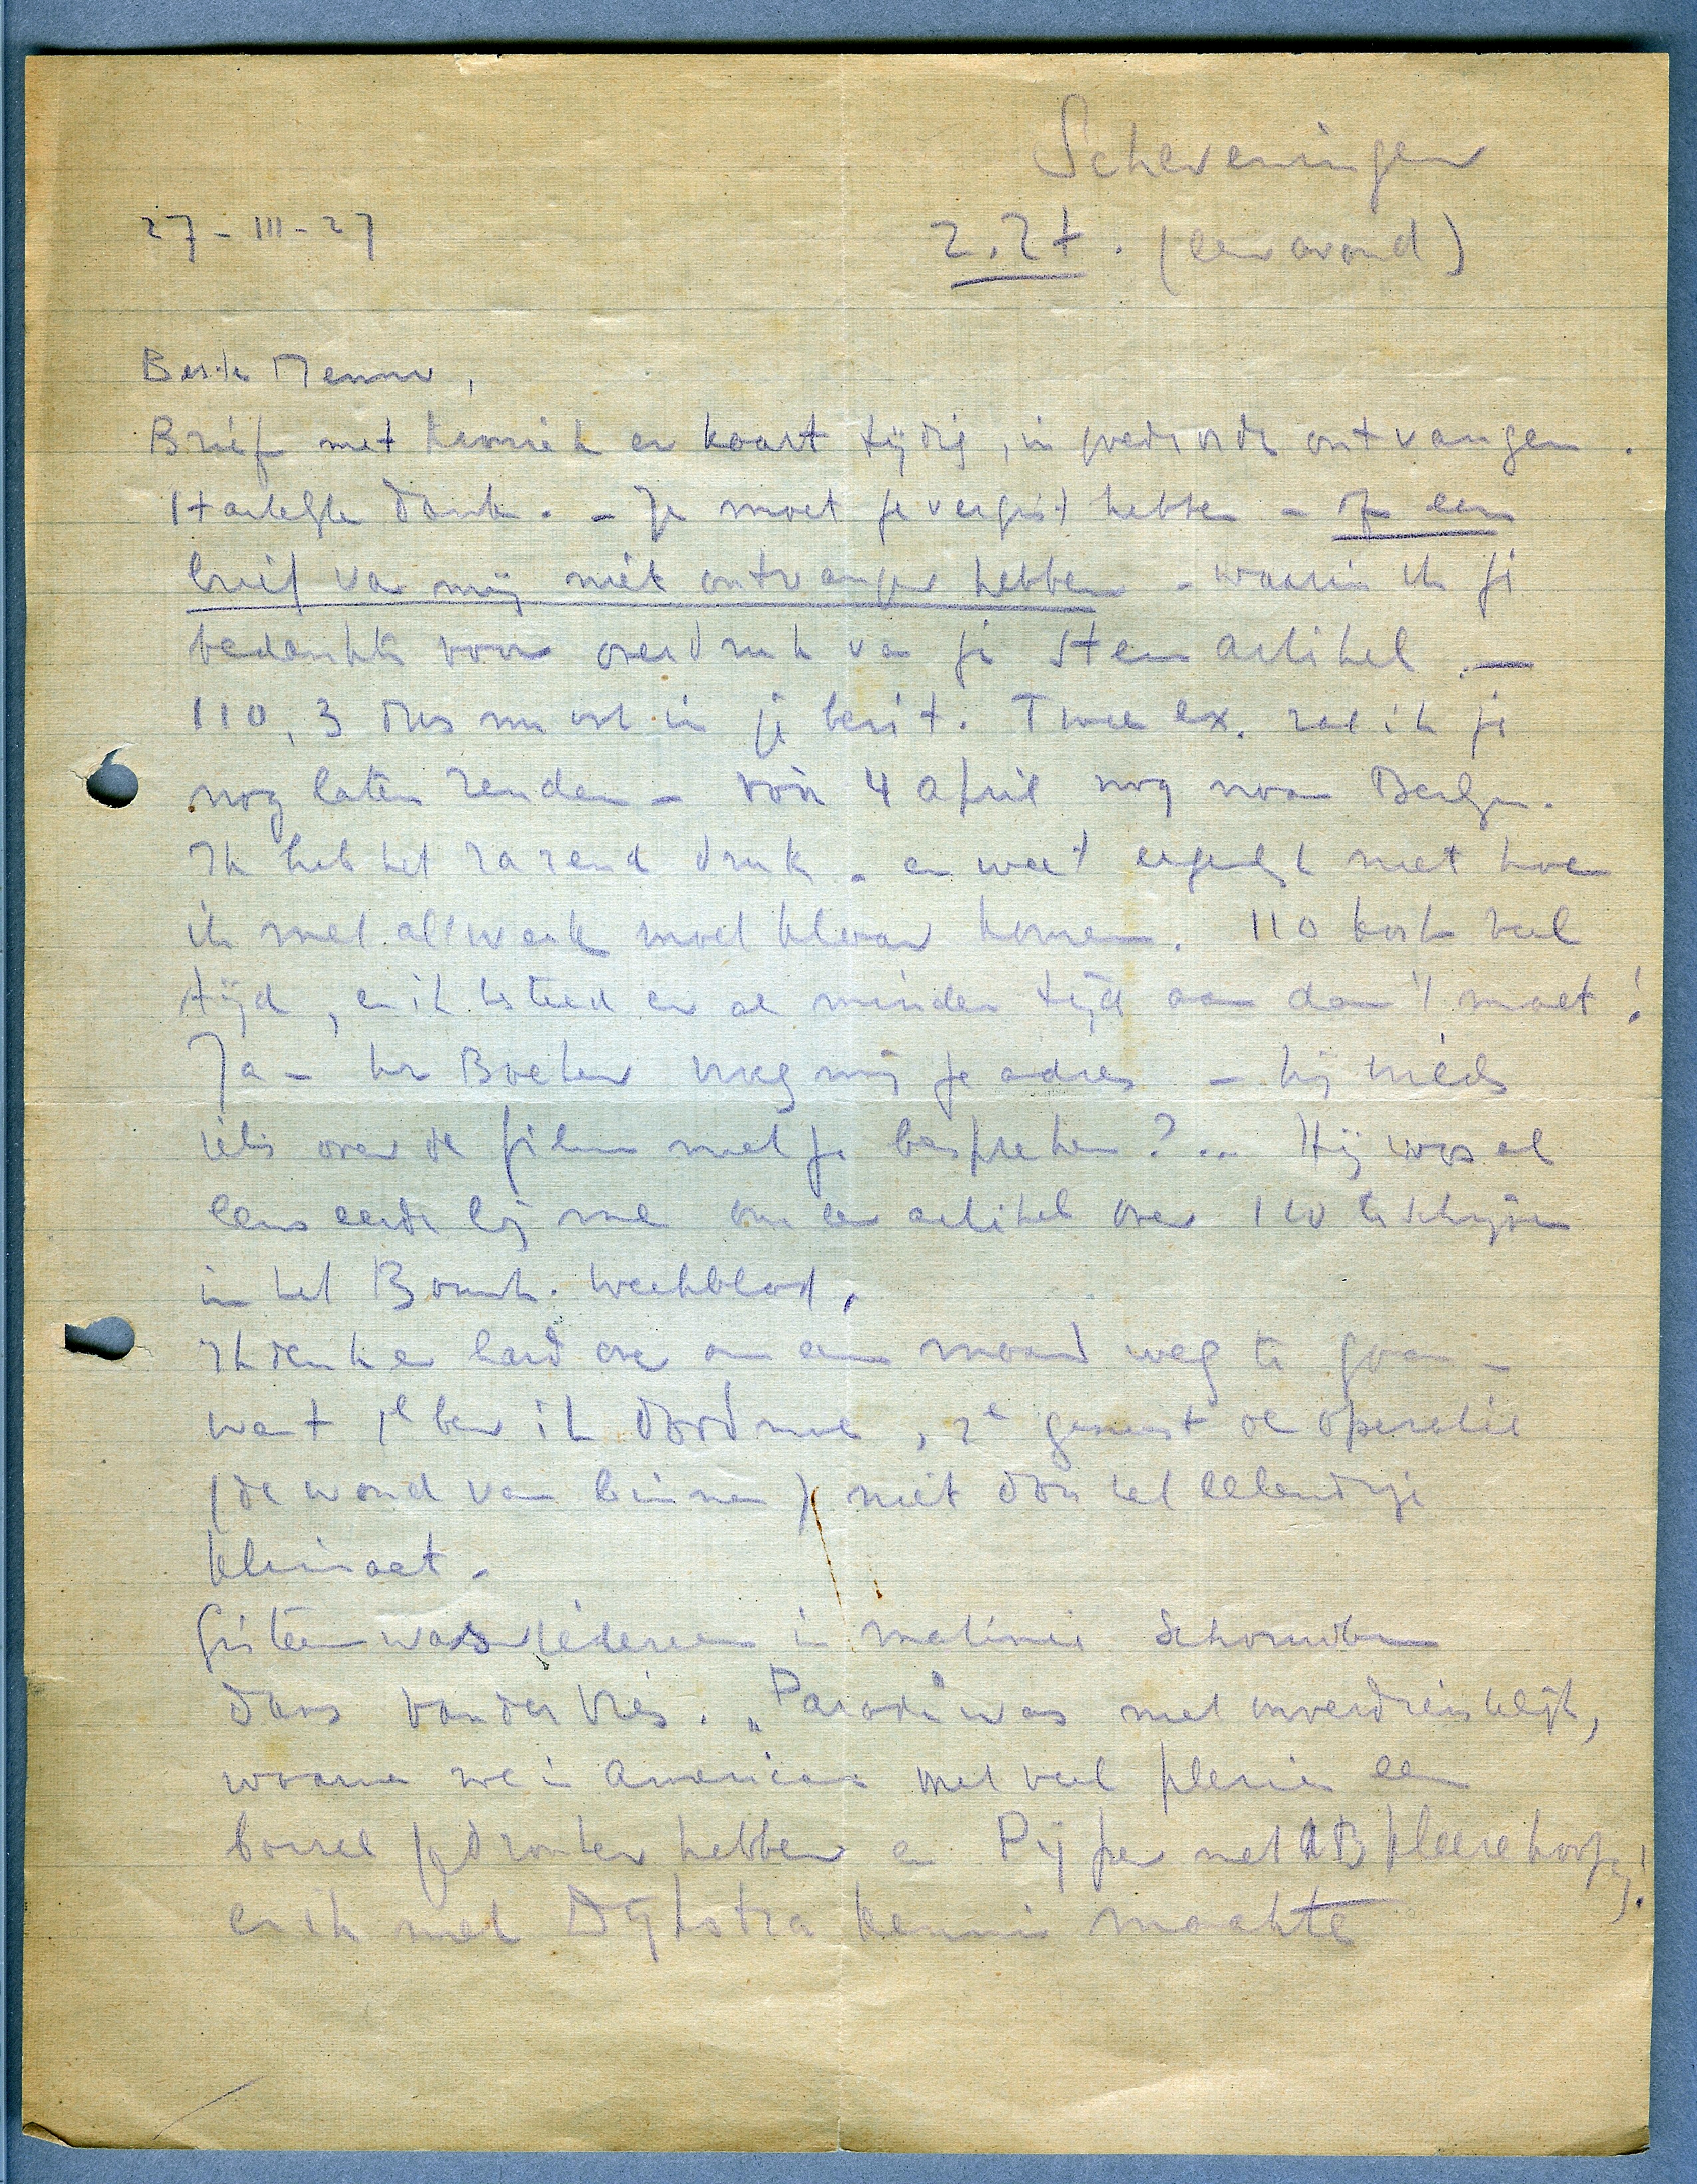 Scheveningen
27-III-27
Z.Z†. (een avond)
Beste Menno,
Brief met kroniek en kaart tijdig, in goede orde ontvangen.
Hartelijke dank. - Je moet je vergist hebben - of een
brief van mij niet ontvangen hebben - waarin ik je
bedankte voor overdruk van je Stem artikel. —
110, 3 dus nu ook in je bezit. Twee ex. zal ik je
nog laten zenden - vóór 4 april nog naar Bergen.
Ik heb het razend druk - en weet eigenlijk niet hoe
ik met al 't werk moet klaar komen. 110 kost veel
tijd, en ik besteed er al minder tijd aan dan 't moet!
Ja - hr Boeken vroeg mij je adres - hij
iets over de film met je bespreken?.. Hij was al
eens eerder bij me om een artikel over 110 te schrijven
in het Bouwk. Weekblad.
Ik denk er hard over om een maand weg te gaan -
want 1e ben ik doodmoe, 2e geneest de operatie
(de wond van binnen) niet door het ellendige
klimaat.
Gisteren was iedereen in matinée Schouwburg
Dans van der Vies. "Parade" was niet onverdienstelijk,
waarna we in Americain met veel plezier een
borrel gedronken hebben en Pijper met AB kleerehoofg!
en ik met Dijkstra kennis maakte